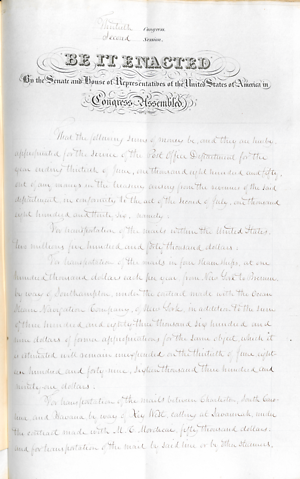 Thirtieth Congress.
Second Session.
BE IT ENACTED
By the Senate and House of Representatives of the United States of America in
Congress Assembled
That the following sums of money be, and they are hereby
appropriated for the service of the Post Office Department for the
year ending thirtieth of June, one thousand eight hundred and fifty,
out of any moneys in the treasury arising from the revenues of the said
department, in conformity to the act of the second of July, one thousand
eight hundred and thirty six, namely:
For transportation of the mails within the United States,
two millions five hundred and fifty thousand dollars.
For transportation of the mails in four steamships, at one
hundred thousand dollars each per year, from New York to Bremen
by way of Southampton, under the contract made with the Ocean
Steam Navigation Company, of New York, in addition to the sum
of three hundred and eighty thousand six hundred and
nine dollars of former appropriations for the same object, which it
is estimated will remain unexpended on the thirtieth of June eight-
een hundred and forty nine, thousand three hundred and
ninety one dollars.
For transportation of the mails between Charleston, South Caro-
lina, and Havana, by way of Key West, calling at Savannah, under
the contract made with M. C. Mordecai, fifty thousand dollars:
and for transportation of the mail by said line or by other steamers,